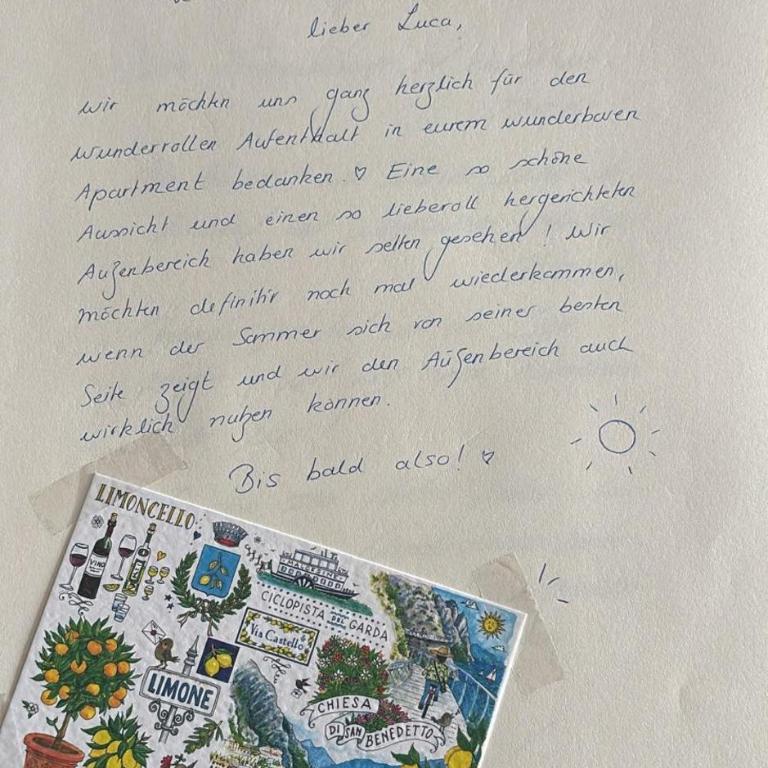 lieber Luca,
wir möchten uns ganz herzlich für den
wundervollen Aufenthalt in eurem wunderbaren
Apartment bedanken. ♡ Eine so schöne
Aussicht und einen so liebevoll hergerichteten
Außenbereich haben wir selten gesehen! Wir
möchten definitiv noch mal wiederkommen,
wenn der Sommer sich von seiner besten
Seite zeigt und wir den Außenbereich auch
wirklich nutzen können.
Bis bald also! ♡
LIMONCELLO
VINO
MALCESINE
CICLOPISTA DEL GARDA
Via Castello
LIMONE
CHIESA
DI SAN BENEDETTO